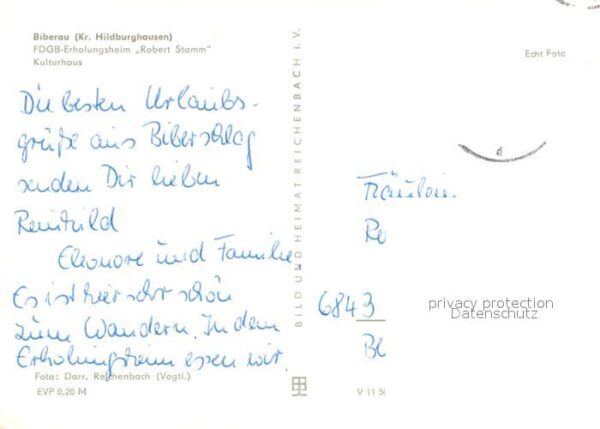 Biberau (Kr. Hildburghausen)
FDGB-Erholungsheim „Robert Stamm"
Kulturhaus
Die besten Urlaubs-
grüße aus Biberschlag
senden Dir lieben
Reinhild
Eleonore und Familie
Es ist hier sehr schön
zum Wandern. In dem
Erholungsheim essen wir.
Foto: Darr, Reichenbach (Vogtl.)
EVP 0,20 M
BILD UND HEIMAT REICHENBACH I. V.
Echt Foto
Fräulein
Re
6843
Bl
privacy protection
Datenschutz
V 11 50